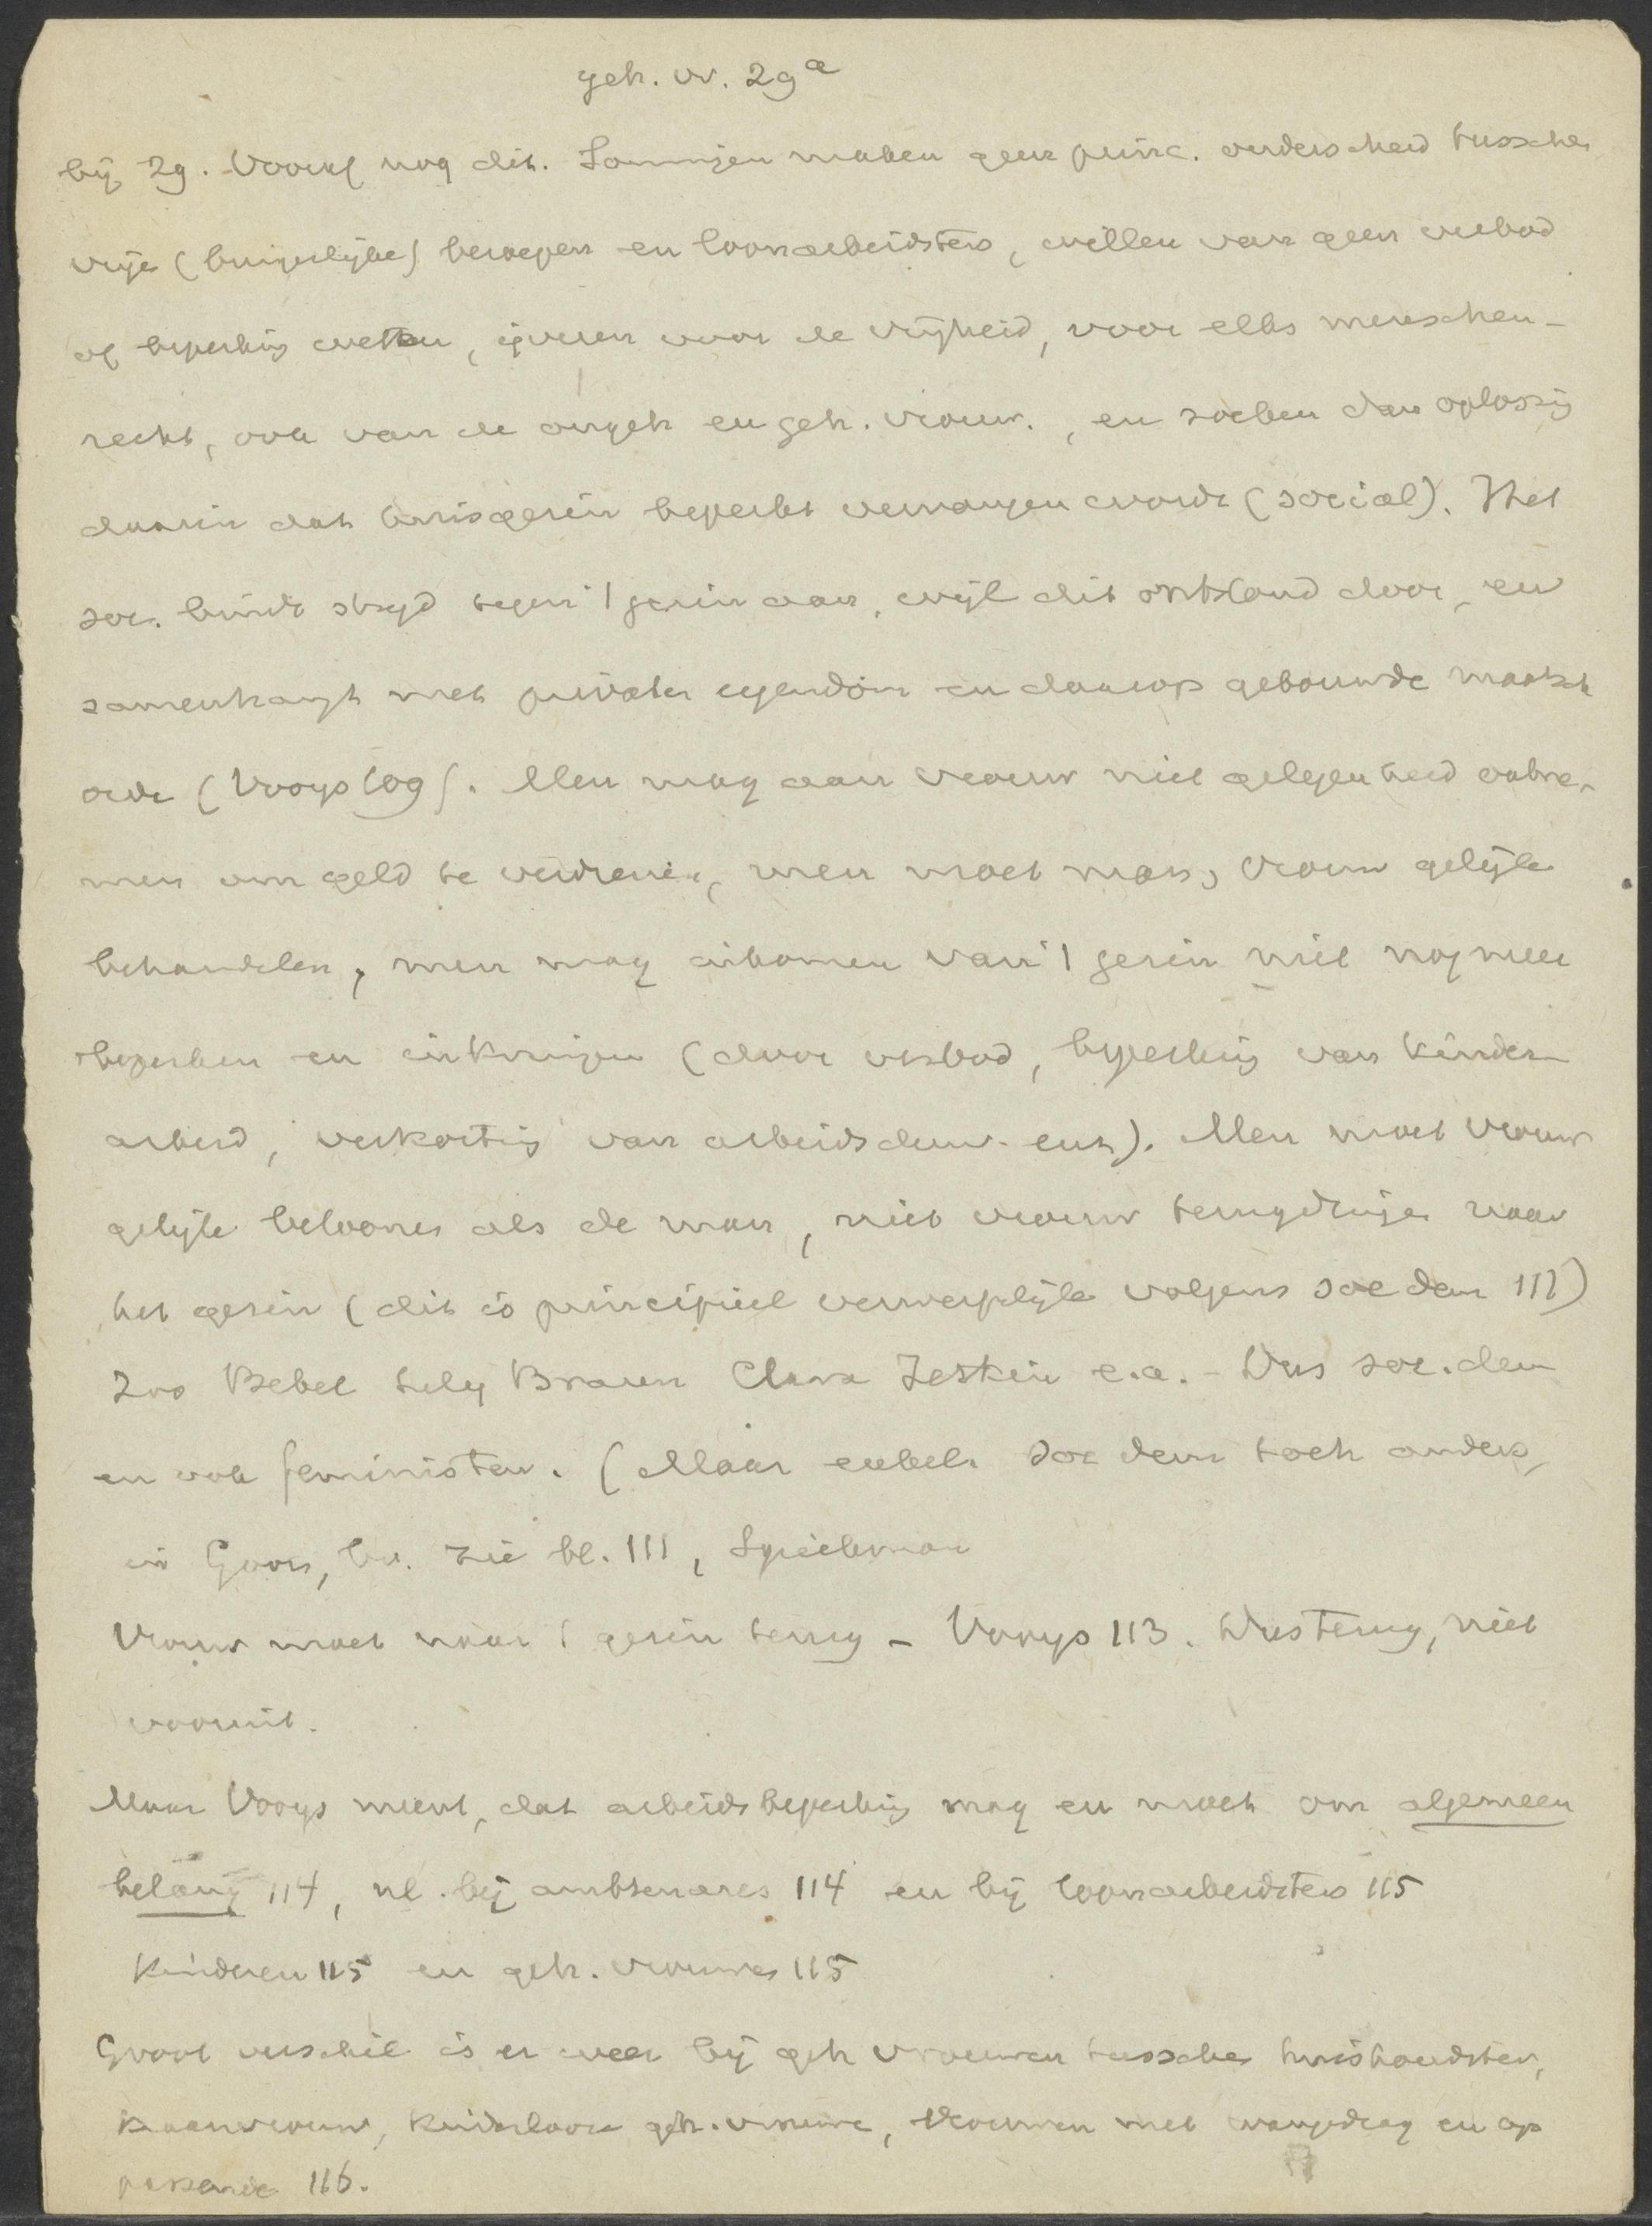 geh. vr. 29a
bij 29. Vooraf nog dit. Sommigen maken geen princ. onderscheid tussche
vrije (burgerlijke) beroepen en loonarbeidsters, willen van geen verbod
of beperking weten, ijveren voor de vrijheid, voor elks menschen-
recht, ook van de ongeh en geh. vrouw., en zoeken dan oplossig
daarin dat huisgezin beperkt vervangen wordt (sociaal). Het
soc. bindt strijd tegen 't gezin aan, wijl dit ontstond door, en
samenhangt met privaten eigendom en daarop gebouwde maatsch
orde (Vooys 109). Men mag aan vrouw niet gelegenheid ontne-
men om geld te verdienen, men moet man, vrouw gelijk
behandelen, men mag inkomen van 't gezin niet nog meer
beperken en inkrimpen (door verbod, beperking van kinder-
arbeid, verkorting van arbeidsduur enz). Men moet vrouw
gelijk beloonen als de man, niet vrouw terugdringen naar
het gezin (dit is principieel verwerpelijk volgens soc dem 111)
Zoo Bebel Lily Braun Clara Zetkin e.a. - Dus soc. dem
en ook feministen. (Maar enkele soc dem toch anders,
in Gooi, bv. zie bl. 111, Spiekman
Vrouw moet naar 't gezin terug - Vooys 113. Dus terug, niet
vooruit.
Maar Vooys meent, dat arbeidsbeperking mag en moet om algemeen
belang 114, nl. bij ambtenares 114 en bij loonarbeidsters 115
Kinderen 115 en geh. vrouwen 115
Groot verschil is er weer bij geh vrouwen tusschen huishoudster,
kraamvrouw, kinderlooze geh. vrouwe, vrouwen met wangedrag en op
passende 116.